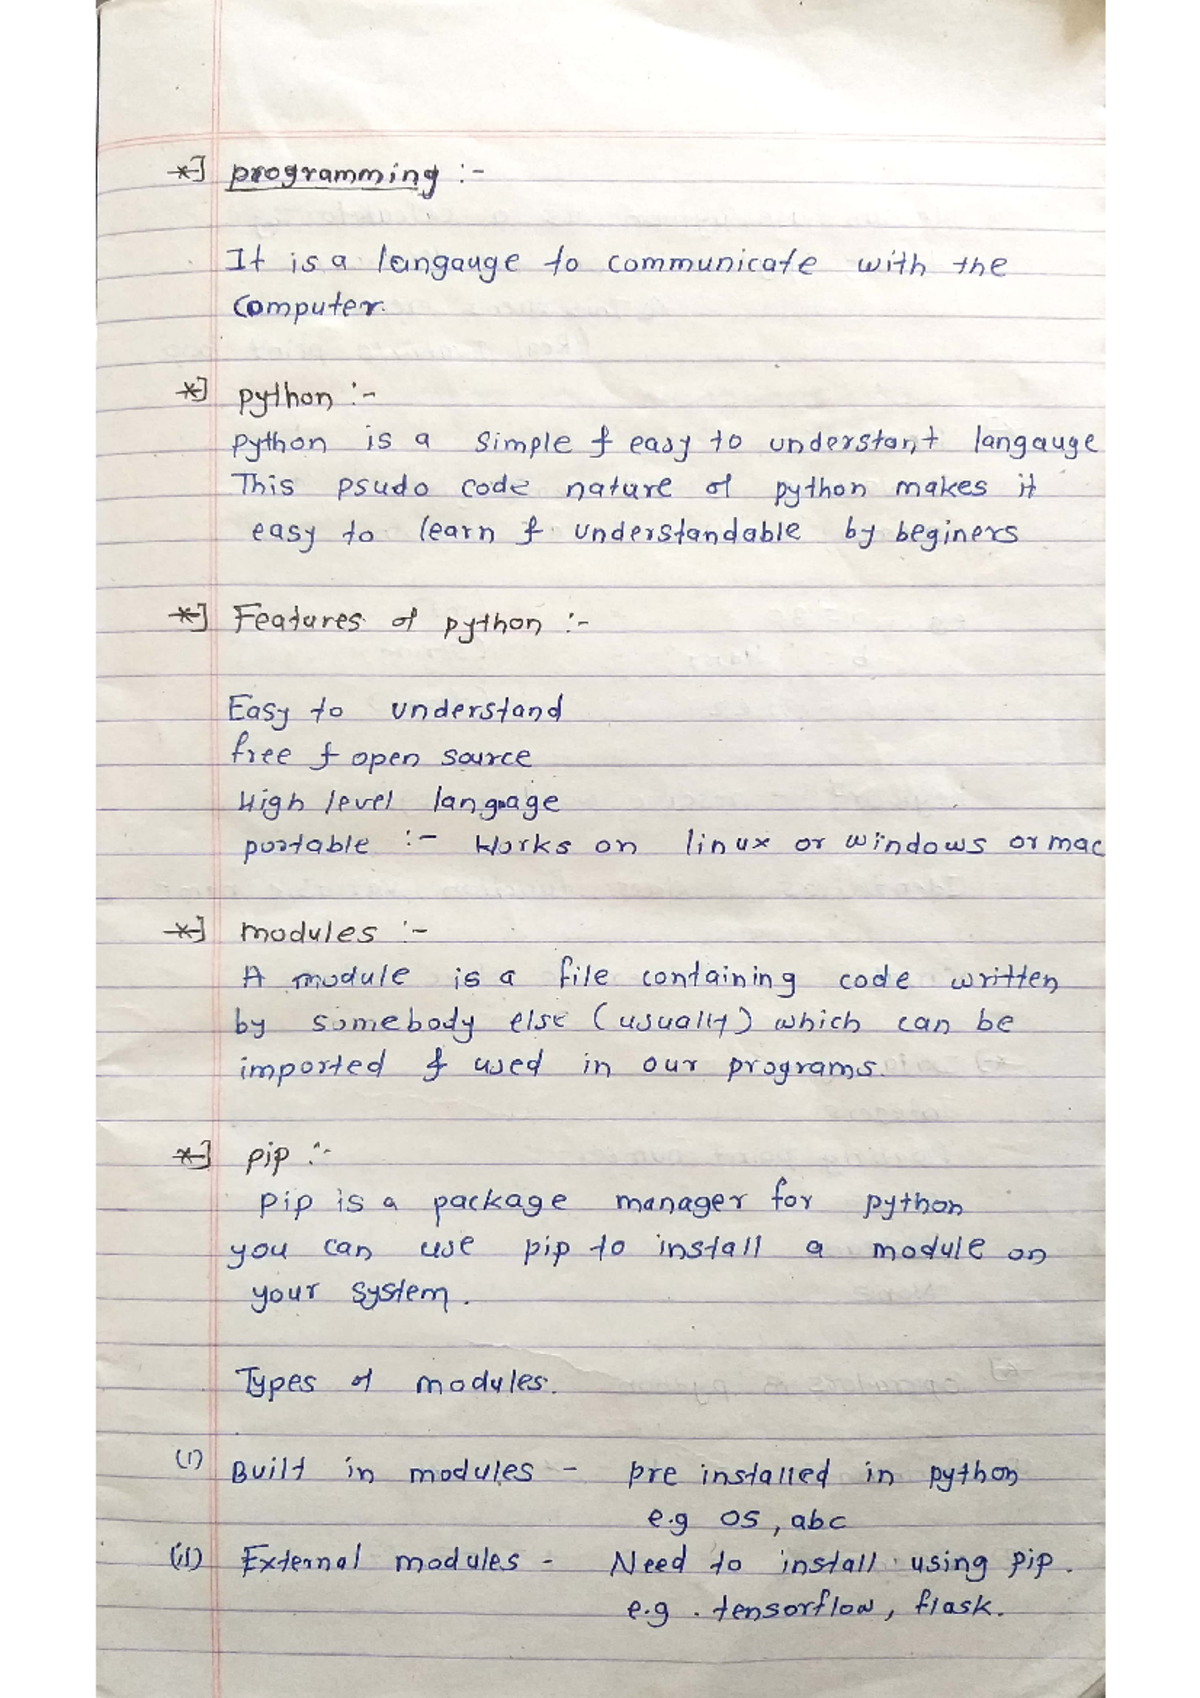 *] programming :-
It is a langauge to communicate with the
computer.
*] python :-
python is a simple & easy to understant langauge
This psudo code nature of python makes it
easy to learn & understandable by beginers
*] Features of python :-
Easy to understand
free & open source
High level language
portable :- Works on linux or windows or mac
*] modules :-
A module is a file containing code written
by somebody else (usually) which can be
imported & used in our programs.
*] pip :-
pip is a package manager for python
you can use pip to install a module on
your system.
Types of modules.
(i) Built in modules - pre installed in python
e.g OS, abc
(ii) External modules - Need to install using pip.
e.g. tensorflow, flask.